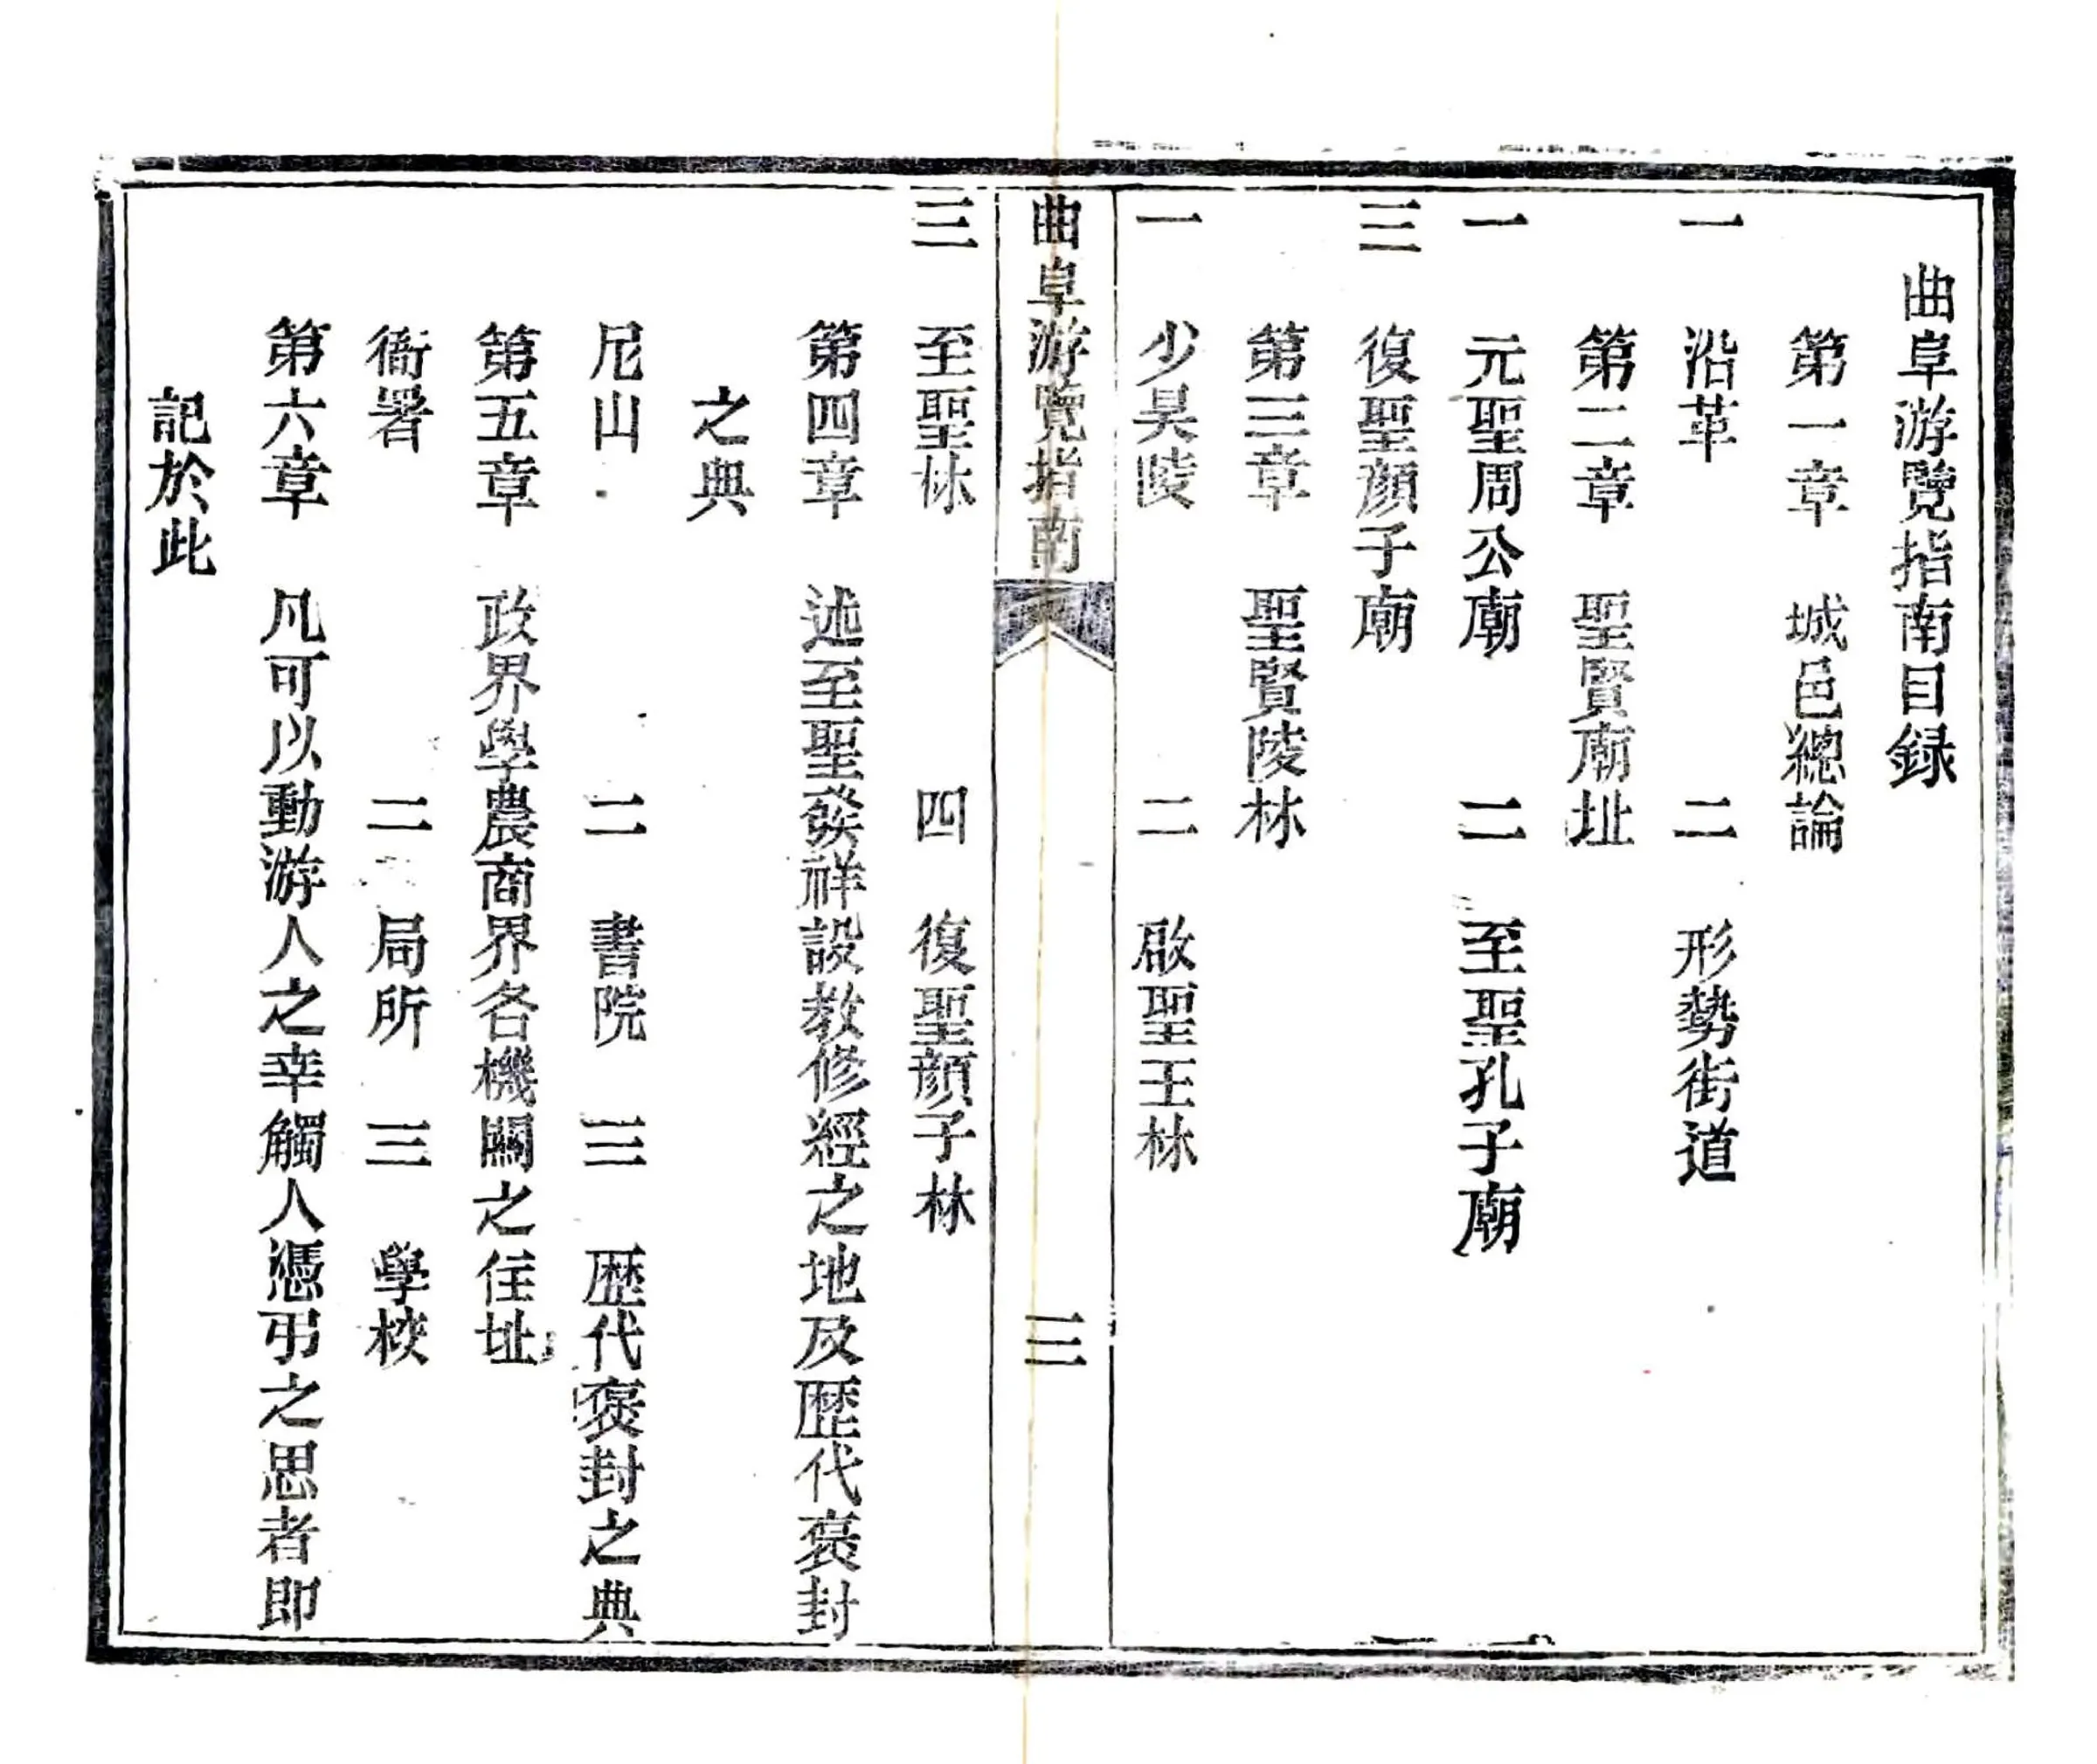 曲阜游覽指南目録
第一章　城邑總論
一　沿革　二　形勢街道
第二章　聖賢廟址
一　元聖周公廟　二　至聖孔子廟
三　復聖顔子廟
第三章　聖賢陵林
一　少昊陵　二　啟聖王林
曲阜游覽指南　三
三　至聖林　四　復聖顔子林
第四章　述至聖發祥設教修經之地及歷代褒封
之典
尼山　二　書院　三　歷代褒封之典
第五章　政界學農商界各機關之住址
衙署　二　局所　三　學校
第六章　凡可以動游人之幸觸人憑弔之思者即
記於此